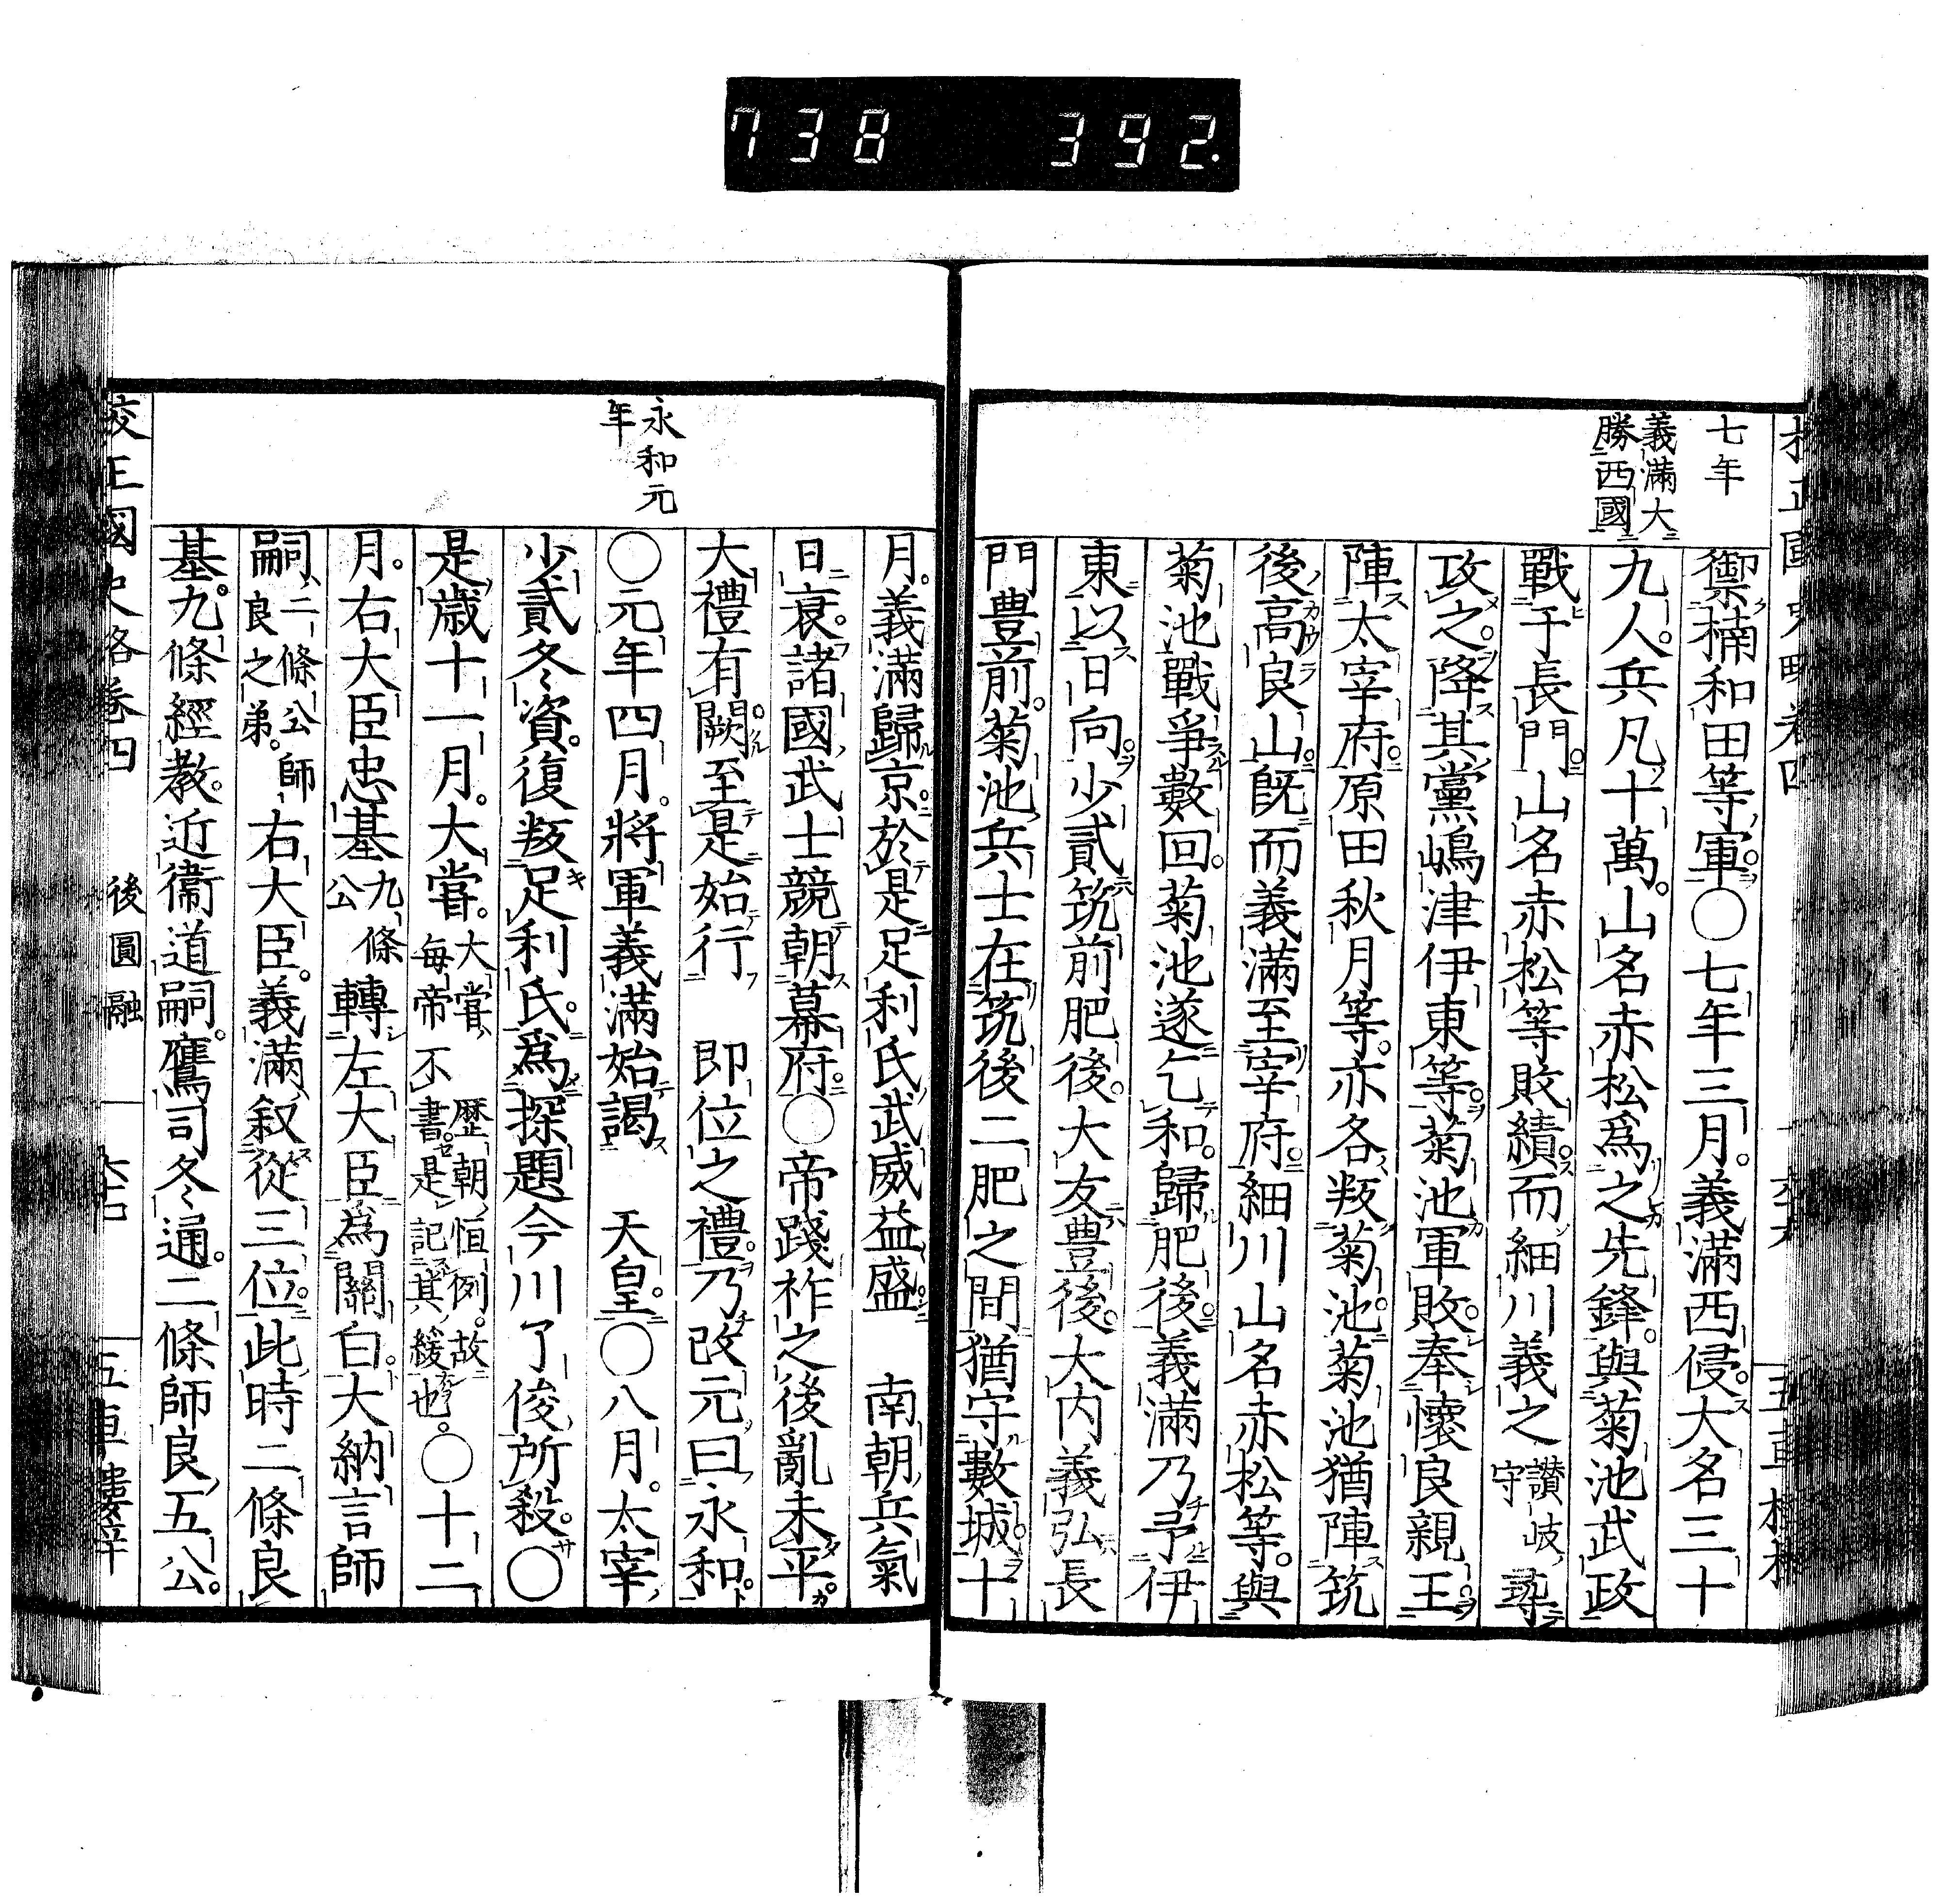 738 392.
七年
義滿大
勝西國
禦楠和田等軍○七年三月義滿西侵大名三十
九人兵凡十萬山名赤松爲之先鋒與菊池武政
戰于長門山名赤松等敗績而細川義之讃岐守尋
攻之降其黨嶋津伊東等菊池軍敗奉懷良親王
陣太宰府原田秋月等亦各叛菊池菊池猶陣筑
後高良山既而義滿至宰府細川山名赤松等與
菊池戰爭數回菊池遂乞和歸肥後義滿乃予伊
東以日向少貳筑前肥後大友豊後大内義弘長
門豊前菊池兵士在筑後二肥之間猶守數城十
永和元
年
月義滿歸京於是足利氏武威益盛 南朝兵氣
日衰諸國武士競朝幕府○帝踐祚之後亂未平
大禮有闕至是始行 即位之禮乃改元曰永和
○元年四月將軍義滿始謁 天皇○八月太宰
少貳冬資復叛足利氏爲探題今川了俊所殺○
是歳十一月大嘗大嘗歷朝恒例故每帝不書是記其緩也○十二
月右大臣忠基九條公轉左大臣爲關白大納言師
嗣二條公師良之弟右大臣義滿叙從三位此時二條良
基九條經教近衞道嗣鷹司冬通二條師良五公
校正國史略卷四 後圓融